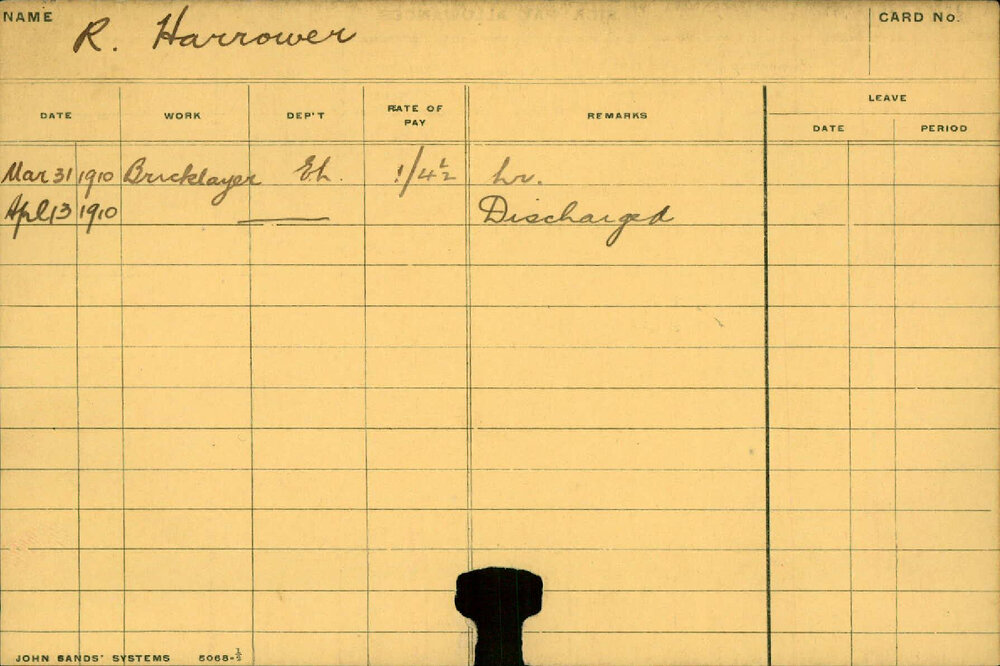 NAME R. Harrower CARD No.
DATE WORK DEP'T RATE OF PAY REMARKS LEAVE
DATE PERIOD
Mar 31 1910 Bricklayer Eh. 1/4½ hr.
Apl 13 1910 —— Discharged
JOHN SANDS' SYSTEMS 5068-½